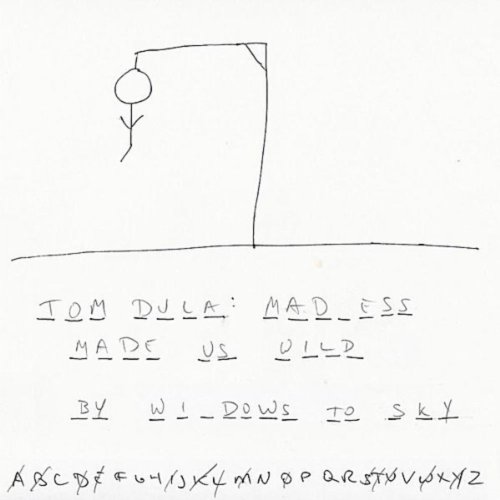 TOM DULA: MAD_ESS
MADE US UILD
BY WI_DOWS TO SKY
A B C D E F G H I J K L M N O P Q R S T U V W X Y Z